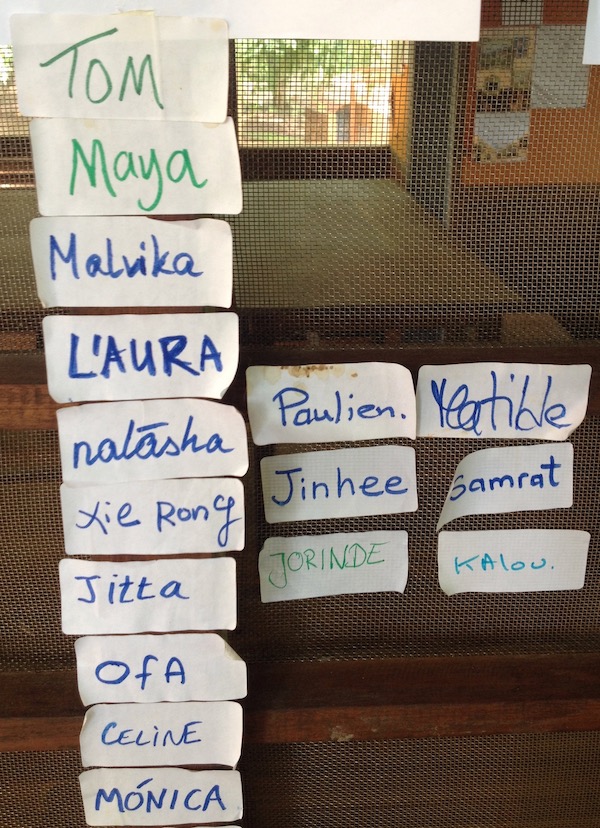 TOM
Maya
Malvika
L'AURA
natāsha
Xie Rong
Jitta
OfA
CELINE
MÓNICA
Paulien.
Jinhee
JORINDE
Matilde
Samrat
KAlou.